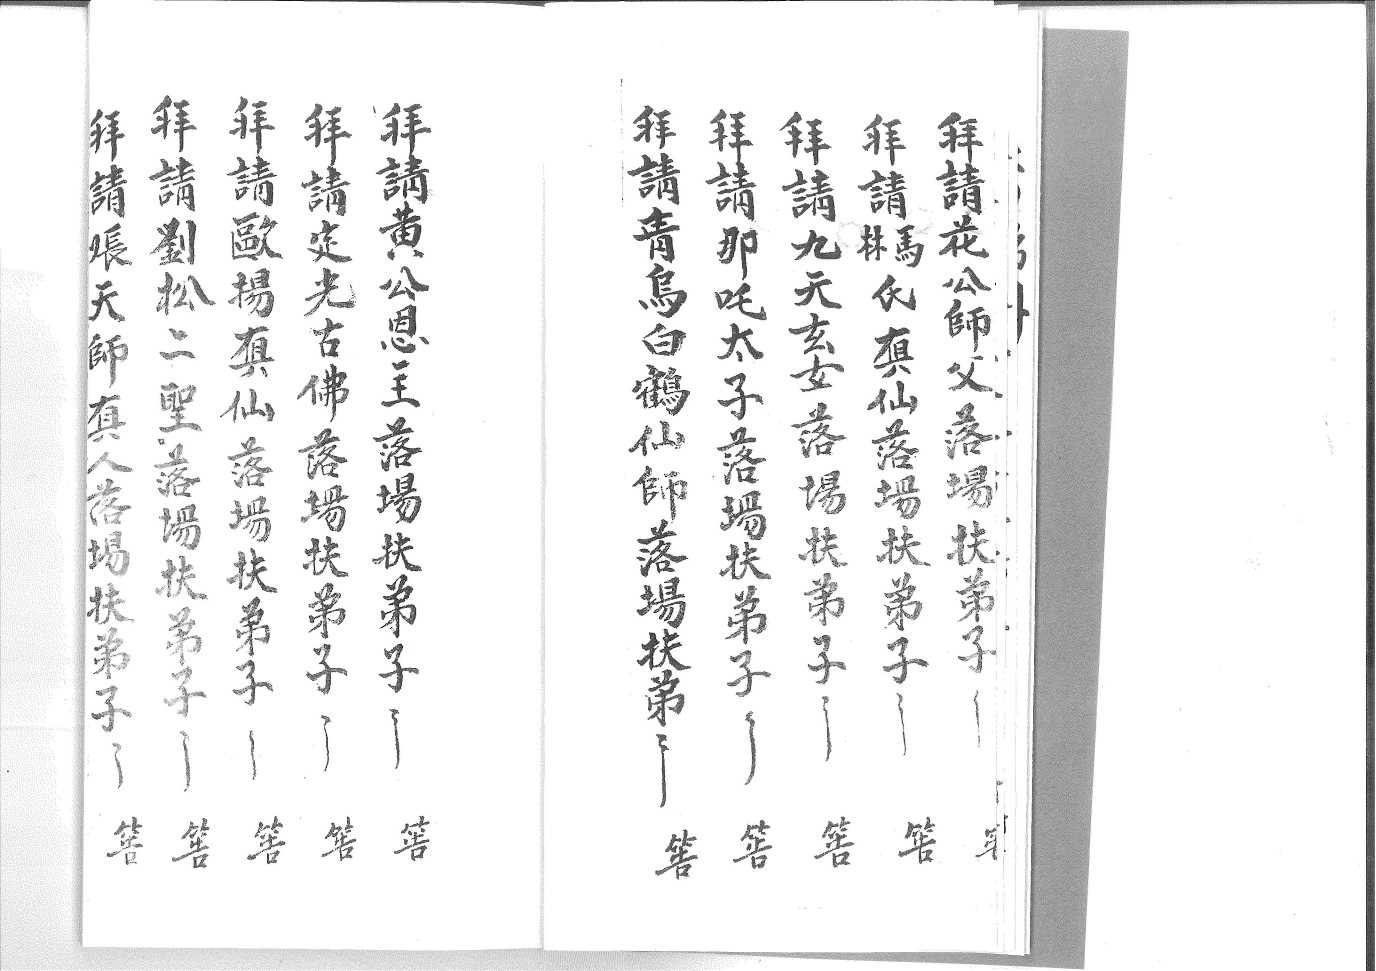 拜請花公師父落場扶弟子
拜請馬林氏真仙落場扶弟子 筶
拜請九天玄女落場扶弟子 筶
拜請那吒太子落場扶弟子 筶
拜請青烏白鶴仙師落場扶弟 筶
拜請黄公恩主落場扶弟子 筶
拜請定光古佛落場扶弟子 筶
拜請歐揚真仙落場扶弟子 筶
拜請劉松二聖落場扶弟子 筶
拜請張天師真人落場扶弟子 筶